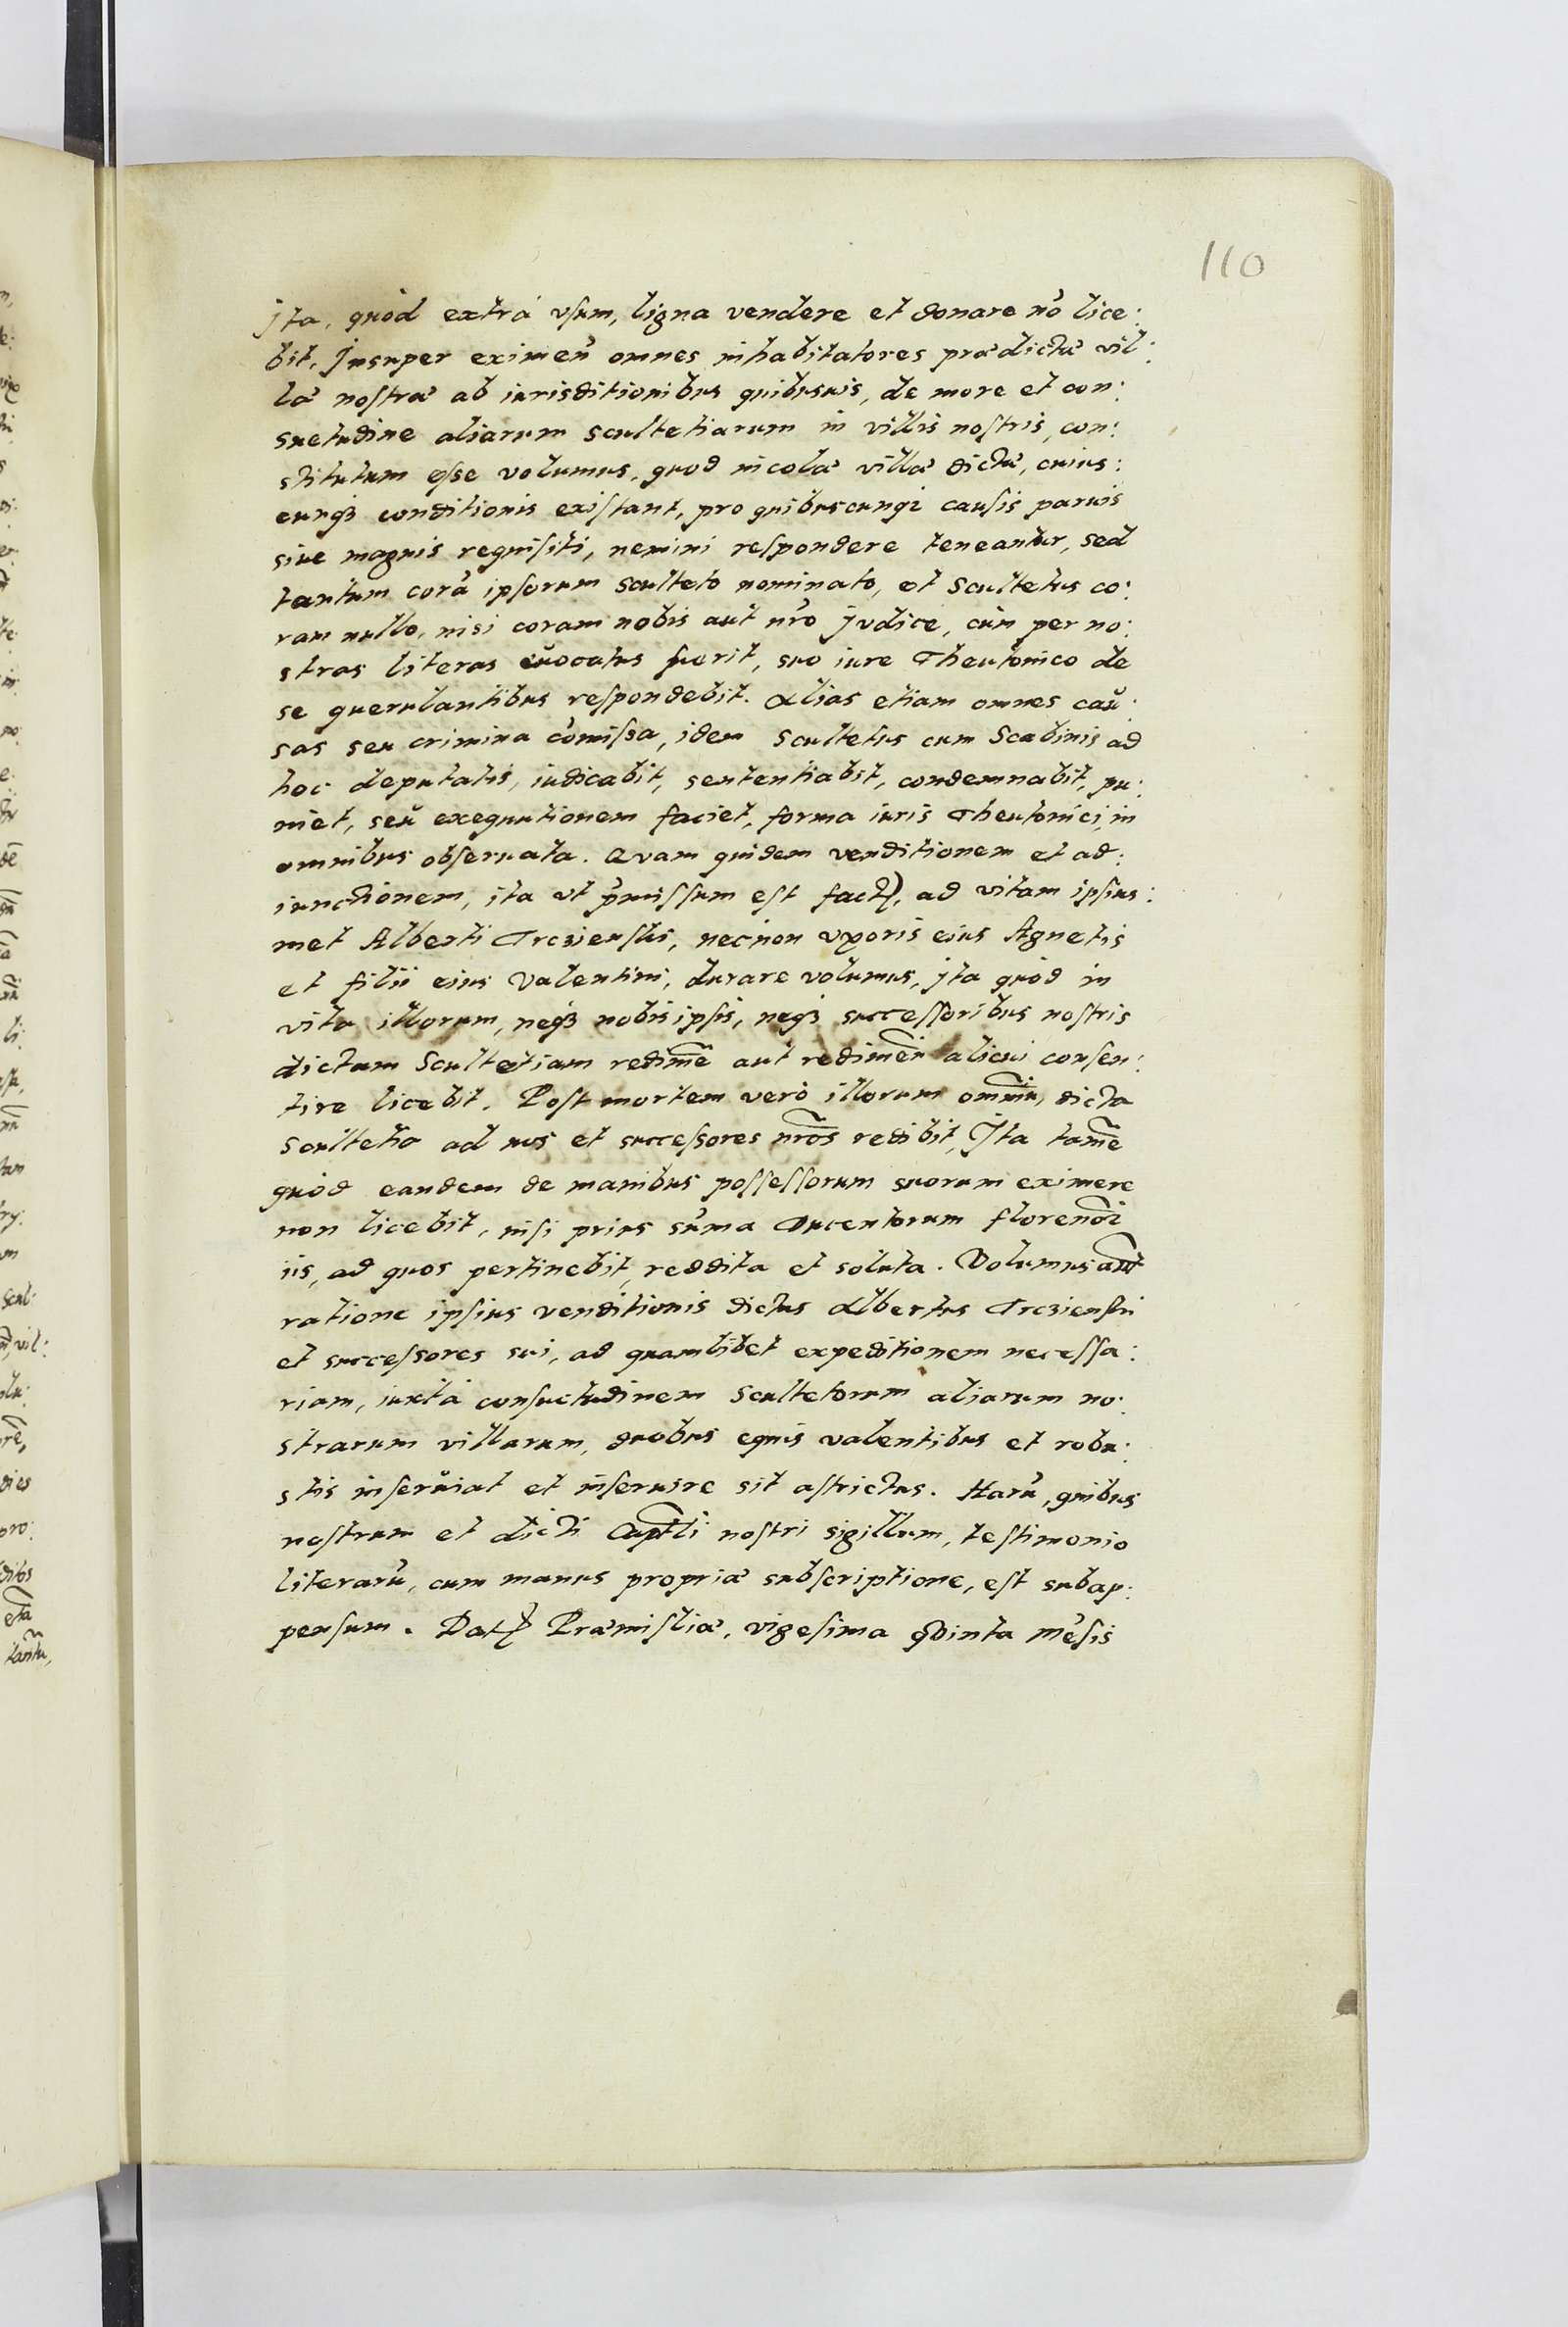 110
jta, quòd extrà vsum, ligna vendere et donare nō lice:
bit. Jnsuper eximeñ omnes inhabitatores prædictæ vil:
læ nostræ ab iurisditionibus quibusuis, de more et con:
suetudine aliarum scultetiarum in villis nostris, con:
stitutum esse volumus, quod incolæ villæ dictæ, cuius:
cunqȝ conditionis existant, pro quibuscunqȝ causis paruis
siue magnis requisiti, nemini respondere teneantur, sed
tantum corā ipsorum sculteto nominato, et Scultetus co:
ram nullo, nisi coram nobis aut nrō Judice, cùm per no:
stras literas euocatus fuerit, suo iure Theutonico de
se querulantibus respondebit. Alias etiam omnes cau:
sas seu crimina cōmissa, idem Scultetus cum Scabinis ad
hoc deputatis, iudicabit, sententiabit, condemnabit, pu:
niet, seu exequutionem faciet, forma iuris Theutonici, in
omnibus obseruata. Quam quidem venditionem et ad:
iunctionem, ita vt p̄missum est fact), ad vitam ipsius:
met Alberti Trczienski, necnon vxoris eius Agnetis
et filii eius Valentini, durare volumus, jta quòd in
vita illorum, neqȝ nobis ipsis, neqȝ successoribus nostris
dictam Scultetiam redim̄e aut redimeñ alicui consen:
tire licebit. Post mortem verò illorum omniū, dicta
Scultetia ad nos et successores nrōs redibit, Jta tamē
quòd eandem de manibus possessorum suorum eximere
non licebit, nisi prius sūma Ducentorum florenōr
iis, ad quos pertinebit, reddita et soluta. Volumus aūt
ratione ipsius venditionis dictus Albertus Trczienski
et successores sui, ad quamlibet expeditionem necessa:
riam, iuxtà consuetudinem Scultetorum aliarum no:
strarum villarum, duobus equis valentibus et robu:
stis inseruiat et inseruire sit astrictus. Harū, quibus
nostrum et dicti Captli nostri sigillum, testimonio
literarū, cum manus propriæ subscriptione, est subap:
pensum. Dat Præmisliæ, vigesima qũinta mēsis